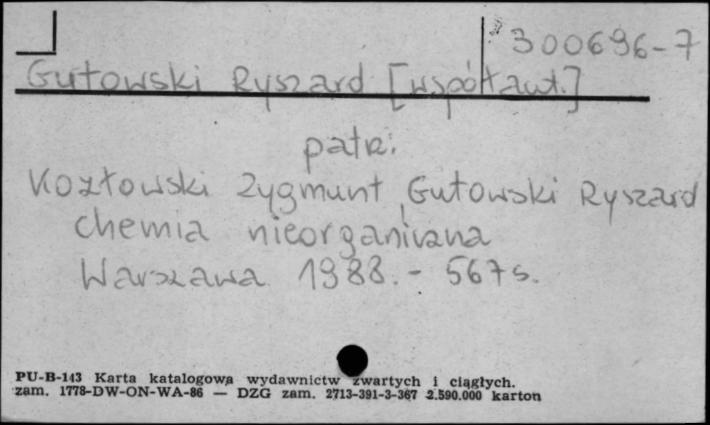 300696-7
Gutowski Ryszard [współaut.]
patrz:
Kozłowski Zygmunt, Gutowski Ryszard
Chemia nieorganiczna
Warszawa 1988. - 567 s.
PU-B-143 Karta katalogowa wydawnictw zwartych i ciągłych.
zam. 1778-DW-ON-WA-86 — DZG zam. 2713-391-3-367 2.590.000 karton